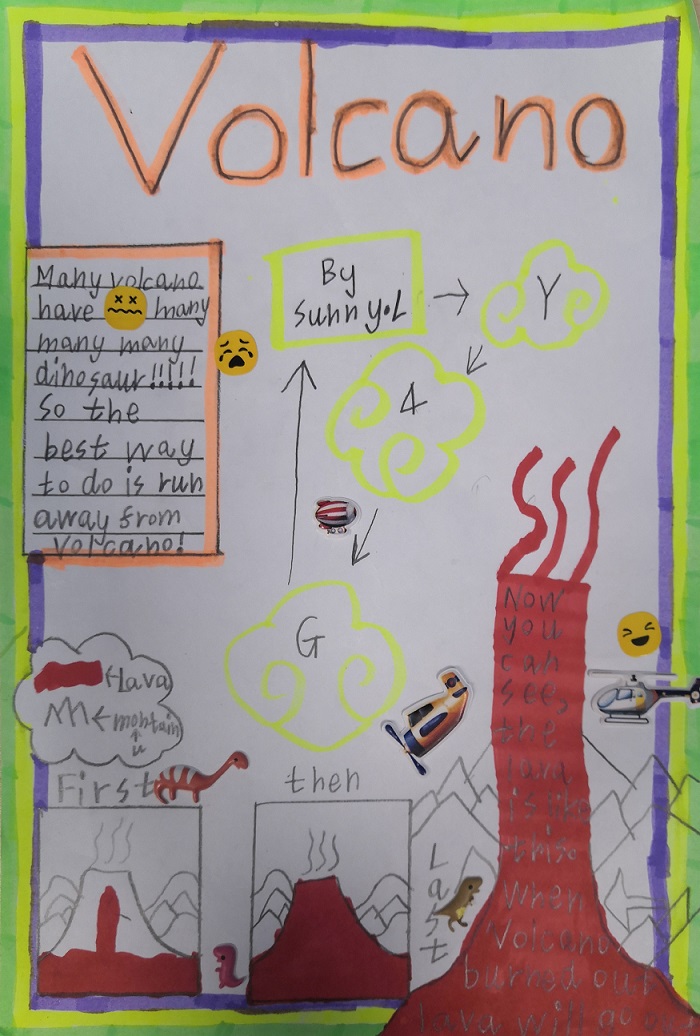 Volcano
Many volcano
have many
many many
dinosaur!!!!!
So the
best way
to do is run
away from
volcano!
By
Sunny.L
Y
4
G
lava
montain
u
First
then
Last
Now
you
can
see,
the
lava
is like
this.
When
Volcano
burned out
lava will go